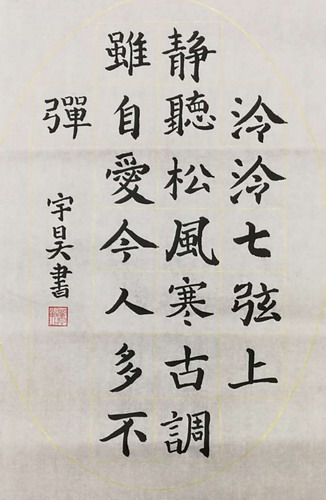 泠泠七弦上
靜聽松風寒古調
雖自愛今人多不
彈
宇昊書